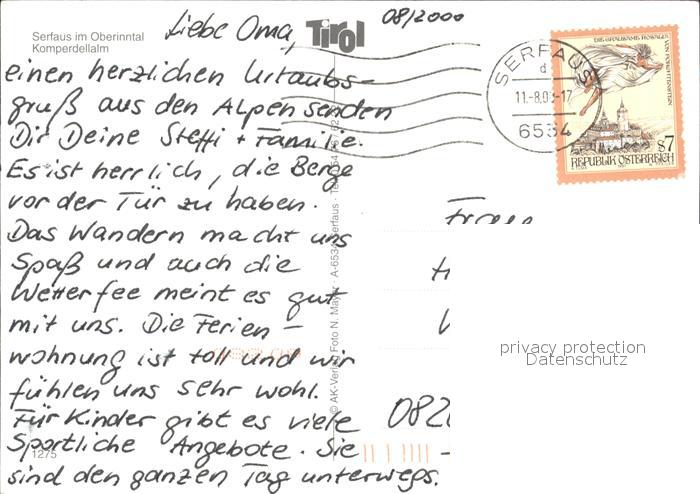 Serfaus im Oberinntal
Komperdellalm
Tirol
08/2000
Liebe Oma,
einen herzlichen Urlaubs-
gruß aus den Alpen senden
Dir Deine Steffi + Familie.
Es ist herrlich, die Berge
vor der Tür zu haben.
Das Wandern macht uns
Spaß und auch die
Wetterfee meint es gut
mit uns. Die Ferien-
wohnung ist toll und wir
fühlen uns sehr wohl.
Für Kinder gibt es viele
Sportliche Angebote. Sie
sind den ganzen Tag unterwegs.
1275
© AK-Verlag Foto N. Mayer · A-6534 Serfaus
SERFAUS
d
11.-8.00-17
6534
REPUBLIK ÖSTERREICH
s7
Frau
082
privacy protection
Datenschutz